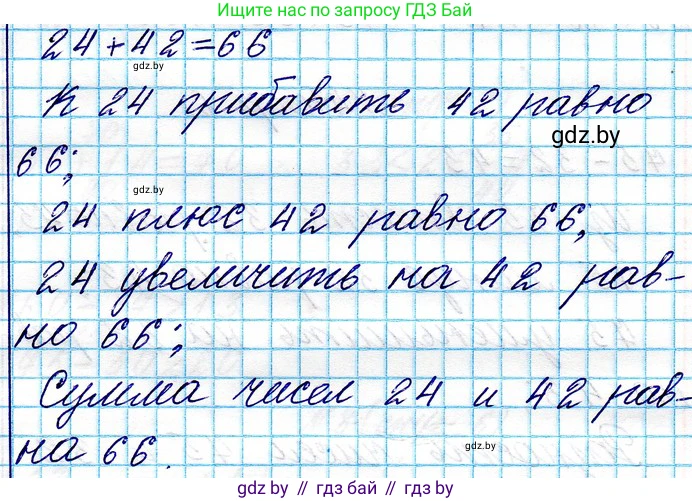 Ищите нас по запросу ГДЗ Бай
24+42=66
gdz.by
К 24 прибавить 42 равно
gdz.by
66;
gdz.by
24 плюс 42 равно 66;
24 увеличить на 42 рав-
но 66;
Сумма чисел 24 и 42 рав-
на 66.
gdz.by
gdz.by // гдз бай // gdz.by